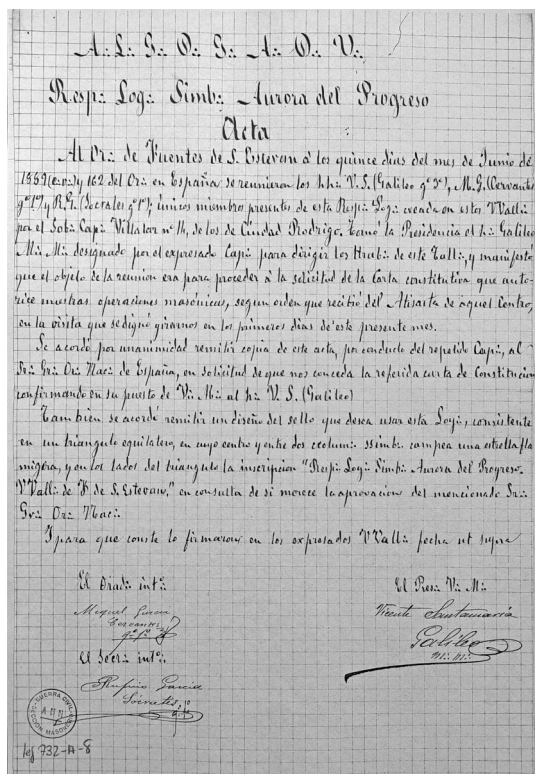 A∴ L∴ G∴ D∴ G∴ A∴ D∴ U∴
Resp∴ Log∴ Simb∴ Aurora del Progreso
Acta
Al Or∴ de Fuentes de S. Estevan á los quince dias del mes de Junio de
1889 (e∴v∴) y 162 del Or∴ en España se reunieron los hh∴ V. S. (Galileo gº 3º), M. G. (Cervantes
gº 1º), R. G. (Socrates gº 1º); únicos miembros presentes de esta Resp∴ Log∴ creada en estos VVall∴
por el Sob∴ Cap∴ Villalar nº 14, de los de Ciudad Rodrigo. Tomó la Presidencia el h∴ Galileo
M∴ M∴ designado por el expresado Cap∴ para dirigir los trab∴ de este Tall∴, y manifestó
que el objeto de la reunion era para proceder á la solicitud de la Carta constitutiva que auto-
rice nuestras operaciones masónicas, segun orden que recibió del Atisarta de aquel Centro,
en la visita que se dignó girarnos en los primeros dias de este presente mes.
Se acordó por unanimidad remitir copia de este acta, por conducto del repetido Cap∴, al
Sr∴ Gr∴ Or∴ Nac∴ de España, en solicitud de que nos conceda la referida carta de Constitucion
confirmando en su puesto de V∴ M∴ al h∴ V. S. (Galileo)
Tambien se acordó remitir un diseño del sello que desea usar esta Log∴, consistente
en un triangulo equilatero, en cuyo centro y entre dos ccolum∴ ssimb∴ campea una estrella fla
migera, y en los lados del triangulo la inscripcion "Resp∴ Log∴ Simb∴ Aurora del Progreso.
VVall∴ de F. de S. Estevan," en consulta de si merece la aprovacion del mencionado Sr∴
Gr∴ Or∴ Nac∴
I para que conste lo firmaron en los expresados VVall∴ fecha ut supra
El Orad∴ intº∴
El Pres∴ V∴ M∴
Miguel Garcia
Cervantes
gº 1º
Vicente Santamaria
Galileo
M∴ M∴
El Secr∴ intº∴
Rufino Garcia
Socrates
gº 1º
GUERRA CIVIL
A H N
SECCION MASONERIA
leg 732-A-8